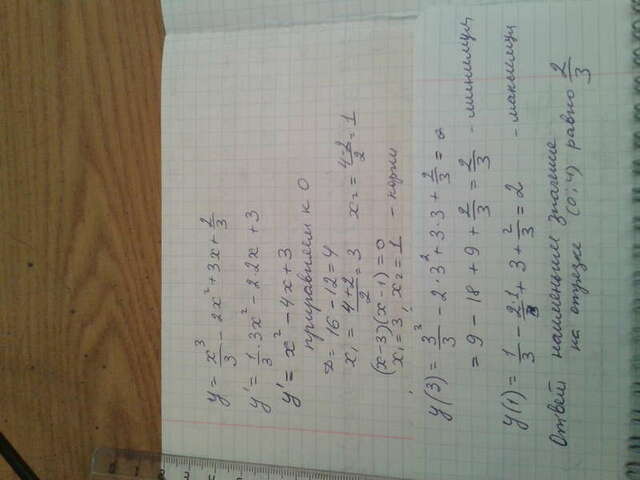 y = x³/3 - 2x² + 3x + 2/3
y' = 1/3·3x² - 2·2x + 3
y' = x² - 4x + 3
приравняем к 0
D = 16 - 12 = 4
x₁ = (4+2)/2 = 3 x₂ = (4-2)/2 = 1
(x-3)(x-1) = 0
x₁ = 3, x₂ = 1 - корни
y(3) = 3³/3 - 2·3² + 3·3 + 2/3 = 2
= 9 - 18 + 9 + 2/3 = 2/3 - минимум
y(1) = 1/3 - 2·1 + 3 + 2/3 = 2 - максимум
Ответ наименьшее значение
на отрезке (0;4) равно 2/3
0 1 2 3 4 5